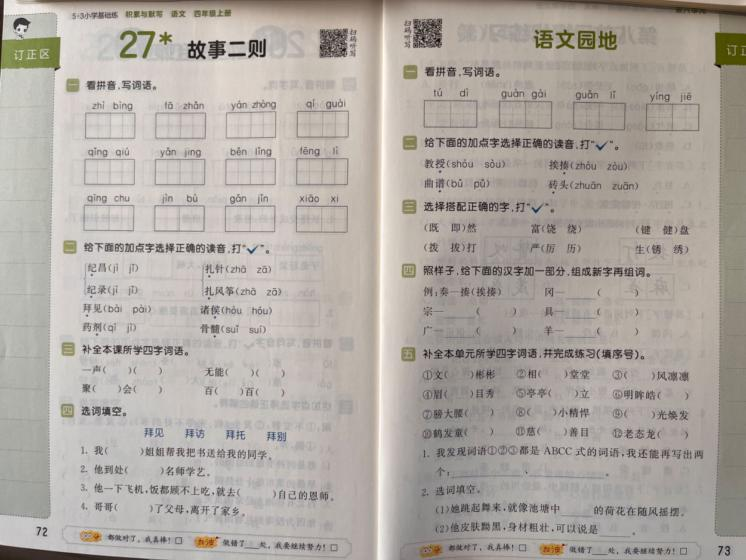 订正区
5·3小学基础练 积累与默写 语文 四年级上册
27* 故事二则
扫码听写
一 看拼音,写词语。
zhì bìng fā zhǎn yán zhòng qí guài
qǐng qiú yǎn jing běn lǐng fēng lì
qīng chu jìn bù gǎn jǐn xiǎo xī
二 给下面的加点字选择正确的读音,打“✓”。
纪昌(jì jǐ) 扎针(zhā zā)
纪录(jì jǐ) 扎风筝(zhā zā)
拜见(bài pài) 诸侯(hòu hóu)
药剂(qì jì) 骨髓(suǐ suí)
三 补全本课所学四字词语。
一声( )( ) 无能( )( )
聚( )会( ) 百( )百( )
四 选词填空。
拜见 拜访 拜托 拜别
1. 我( )姐姐帮我把书送给我的同学。
2. 他到处( )名师学艺。
3. 他一下飞机,饭都顾不上吃,就去( )自己的恩师。
4. 哥哥( )了父母,离开了家乡。
72
都做对了,我真棒! □ 做错了 处,我要继续努力! □
语文园地
扫码听写
订正区
一 看拼音,写词语。
tú dì guàn gài guǎn lǐ yíng jiē
二 给下面的加点字选择正确的读音,打“✓”。
教授(shòu sòu) 挨揍(zhòu zòu)
曲谱(bǔ pǔ) 砖头(zhuān zuān)
三 选择搭配正确的字,打“✓”。
(既 即)然 富(饶 绕) (键 健)盘
(拨 拔)打 严(厉 历) 生(锈 绣)
四 照样子,给下面的汉字加一部分,组成新字再组词。
例:奏—揍(挨揍) 冈— ( )
宗— ( ) 具— ( )
广— ( ) 羊— ( )
五 补全本单元所学四字词语,并完成练习(填序号)。
①文( )彬彬 ②相( )堂堂 ③( )风凛凛
④眉( )目秀 ⑤亭亭( )立 ⑥明眸皓( )
⑦膀大腰( ) ⑧( )小精悍 ⑨( )光焕发
⑩鹤发童( ) ⑪慈( )善目 ⑫老态龙( )
1. 我发现词语①②③都是 ABCC 式的词语,我还能再写出两
个: 、 。
2. 选词填空。
(1)她跳起舞来,就像池塘中 的荷花在随风摇摆。
(2)他皮肤黝黑,身材粗壮,可以说是 。
都做对了,我真棒! □ 做错了 处,我要继续努力! □
73